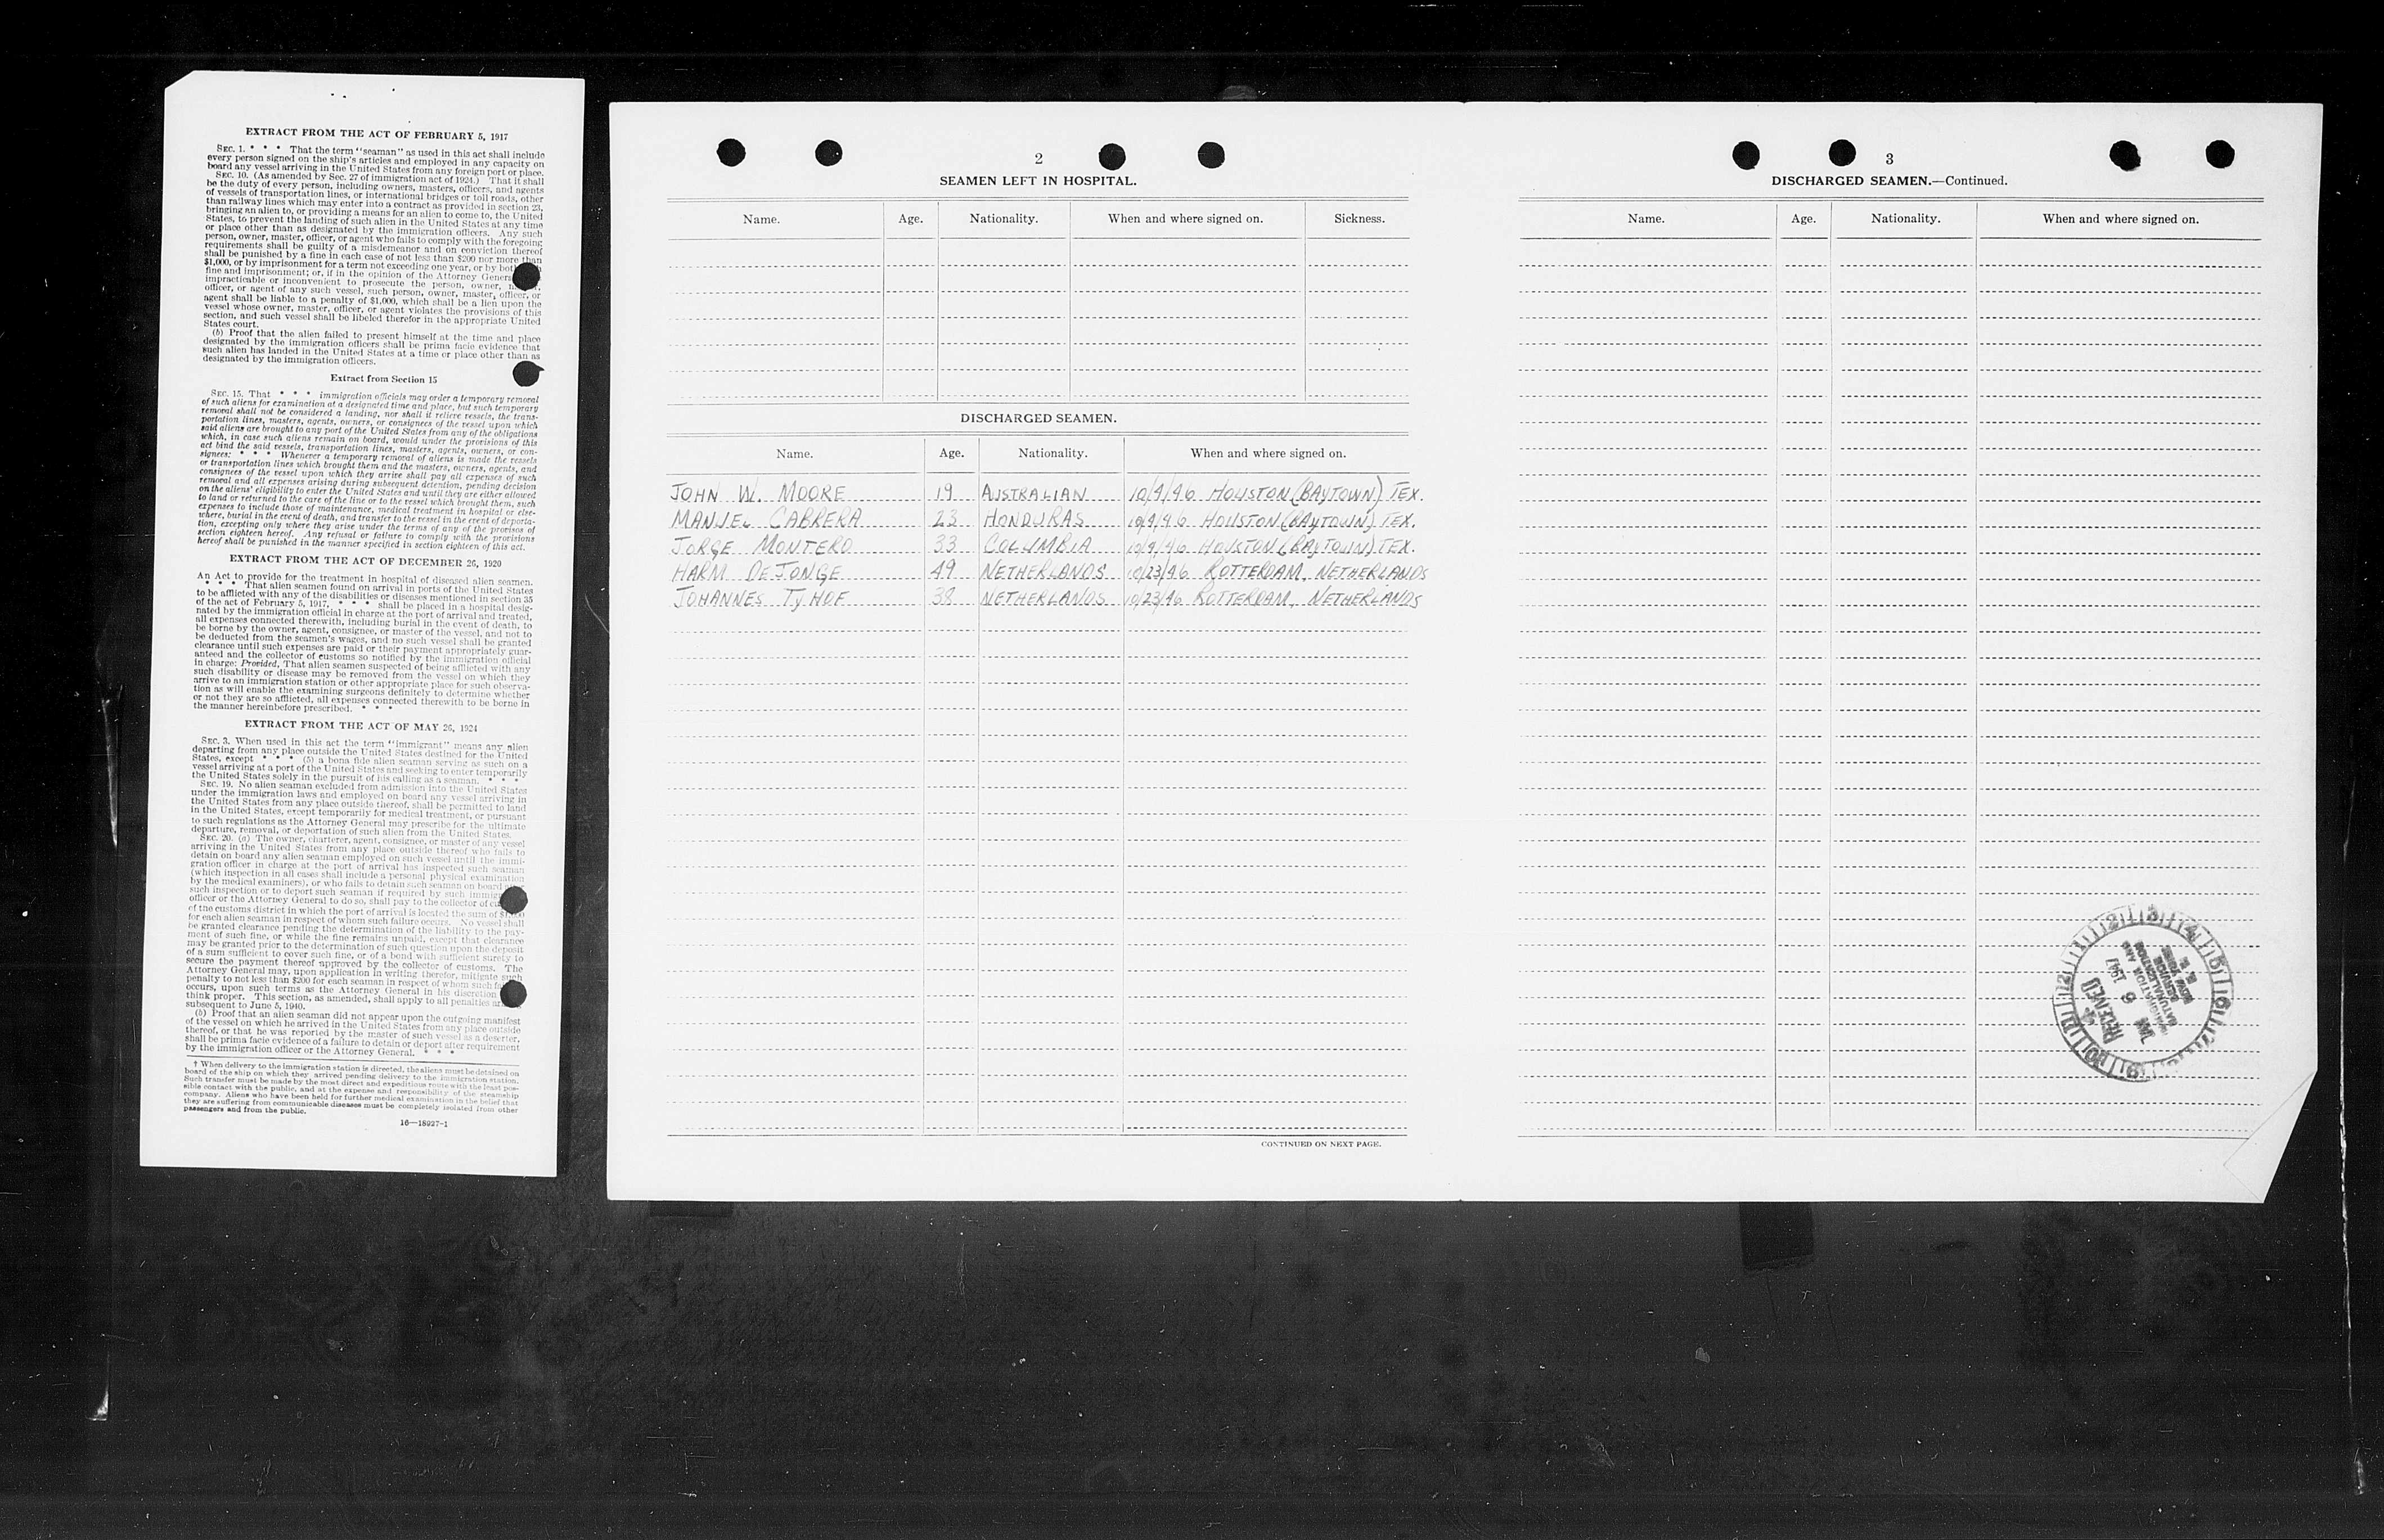 EXTRACT FROM THE ACT OF FEBRUARY 5, 1917
SEC. 1. * * * That the term "seaman" as used in this act shall include
every person signed on the ship's articles and employed in any capacity on
board any vessel arriving in the United States from any foreign port or place.
SEC. 10. (As amended by Sec. 27 of immigration act of 1924.) That it shall
be the duty of every person, including owners, masters, officers, and agents
of vessels of transportation lines, or international bridges or toll roads, other
than railway lines which may enter into a contract as provided in section 23,
bringing an alien to, or providing a means for an alien to come to, the United
States, to prevent the landing of such alien in the United States at any time
or place other than as designated by the immigration officers. Any such
person, owner, master, officer, or agent who fails to comply with the foregoing
requirements shall be guilty of a misdemeanor and on conviction thereof
shall be punished by a fine in each case of not less than $200 nor more than
$1,000, or by imprisonment for a term not exceeding one year, or by both
fine and imprisonment; or, if in the opinion of the Attorney General
impracticable or inconvenient to prosecute the person, owner,
officer, or agent of any such vessel, such person, owner, master, officer, or
agent shall be liable to a penalty of $1,000, which shall be a lien upon the
vessel whose owner, master, officer, or agent violates the provisions of this
section, and such vessel shall be libeled therefor in the appropriate United
States court.
(b) Proof that the alien failed to present himself at the time and place
designated by the immigration officers shall be prima facie evidence that
such alien has landed in the United States at a time or place other than as
designated by the immigration officers.
Extract from Section 15
SEC. 15. That * * * immigration officials may order a temporary removal
of such aliens for examination at a designated time and place, but such temporary
removal shall not be considered a landing, nor shall it relieve vessels, the trans-
portation lines, masters, agents, owners, or consignees of the vessel upon which
said aliens are brought to any port of the United States from any of the obligations
which, in case such aliens remain on board, would under the provisions of this
act bind the said vessels, transportation lines, masters, agents, owners, or con-
signees: * * * Whenever a temporary removal of aliens is made the vessels
or transportation lines which brought them and the masters, owners, agents, and
consignees of the vessel upon which they arrive shall pay all expenses of such
removal and all expenses arising during subsequent detention, pending decision
on the aliens' eligibility to enter the United States and until they are either allowed
to land or returned to the care of the line or to the vessel which brought them, such
expenses to include those of maintenance, medical treatment in hospital or else-
where, burial in the event of death, and transfer to the vessel in the event of deporta-
tion, excepting only where they arise under the terms of any of the provisos of
section eighteen hereof. Any refusal or failure to comply with the provisions
hereof shall be punished in the manner specified in section eighteen of this act.
EXTRACT FROM THE ACT OF DECEMBER 26, 1920
An Act to provide for the treatment in hospital of diseased alien seamen.
* * * That alien seamen found on arrival in ports of the United States
to be afflicted with any of the disabilities or diseases mentioned in section 35
of the act of February 5, 1917, * * * shall be placed in a hospital desig-
nated by the immigration official in charge at the port of arrival and treated,
all expenses connected therewith, including burial in the event of death, to
be borne by the owner, agent, consignee, or master of the vessel, and not to
be deducted from the seamen's wages, and no such vessel shall be granted
clearance until such expenses are paid or their payment appropriately guar-
anteed and the collector of customs so notified by the immigration official
in charge: Provided, That alien seamen suspected of being afflicted with any
such disability or disease may be removed from the vessel on which they
arrive to an immigration station or other appropriate place for such observa-
tion as will enable the examining surgeons definitely to determine whether
or not they are so afflicted, all expenses connected therewith to be borne in
the manner hereinbefore prescribed. * * *
EXTRACT FROM THE ACT OF MAY 26, 1924
SEC. 3. When used in this act the term "immigrant" means any alien
departing from any place outside the United States destined for the United
States, except * * * (5) a bona fide alien seaman serving as such on a
vessel arriving at a port of the United States and seeking to enter temporarily
the United States solely in the pursuit of his calling as a seaman. * * *
SEC. 19. No alien seaman excluded from admission into the United States
under the immigration laws and employed on board any vessel arriving in
the United States from any place outside thereof, shall be permitted to land
in the United States, except temporarily for medical treatment, or pursuant
to such regulations as the Attorney General may prescribe for the ultimate
departure, removal, or deportation of such alien from the United States.
SEC. 20. (a) The owner, charterer, agent, consignee, or master of any vessel
arriving in the United States from any place outside thereof who fails to
detain on board any alien seaman employed on such vessel until the immi-
gration officer in charge at the port of arrival has inspected such seaman
(which inspection in all cases shall include a personal physical examination
by the medical examiners), or who fails to detain such seaman on board
such inspection or to deport such seaman if required by such
officer or the Attorney General to do so, shall pay to the collector of
of the customs district in which the port of arrival is located the sum of
for each alien seaman in respect of whom such failure occurs. No vessel shall
be granted clearance pending the determination of the liability to the pay-
ment of such fine, or while the fine remains unpaid, except that clearance
may be granted prior to the determination of such question upon the deposit
of a sum sufficient to cover such fine, or of a bond with sufficient surety to
secure the payment thereof approved by the collector of customs. The
Attorney General may, upon application in writing therefor, mitigate such
penalty to not less than $200 for each seaman in respect of whom such
occurs, upon such terms as the Attorney General in his discretion
think proper. This section, as amended, shall apply to all penalties
subsequent to June 5, 1940.
(b) Proof that an alien seaman did not appear upon the outgoing manifest
of the vessel on which he arrived in the United States from any place outside
thereof, or that he was reported by the master of such vessel as a deserter,
shall be prima facie evidence of a failure to detain or deport after requirement
by the immigration officer or the Attorney General. * * *
† When delivery to the immigration station is directed, the aliens must be detained on
board of the ship on which they arrived pending delivery to the immigration station.
Such transfer must be made by the most direct and expeditious route with the least pos-
sible contact with the public, and at the expense and responsibility of the steamship
company. Aliens who have been held for further medical examination in the belief that
they are suffering from communicable diseases must be completely isolated from other
passengers and from the public.
16—18927-1
2
SEAMEN LEFT IN HOSPITAL.
Name. Age. Nationality. When and where signed on. Sickness.
DISCHARGED SEAMEN.
Name. Age. Nationality. When and where signed on.
JOHN W. MOORE 19 AUSTRALIAN 10/4/46 HOUSTON (BAYTOWN) TEX.
MANUEL CABRERA 23 HONDURAS 10/4/46 HOUSTON (BAYTOWN) TEX.
JORGE MONTERO 33 COLUMBIA 10/4/46 HOUSTON (BAYTOWN) TEX.
HARM DEJONGE 49 NETHERLANDS 10/23/46 ROTTERDAM, NETHERLANDS
JOHANNES TYHOF 38 NETHERLANDS 10/23/46 ROTTERDAM, NETHERLANDS
CONTINUED ON NEXT PAGE.
3
DISCHARGED SEAMEN.—Continued.
Name. Age. Nationality. When and where signed on.
RECEIVED
JAN 6 1947
IMMIGRATION AND
NATURALIZATION
SERVICE